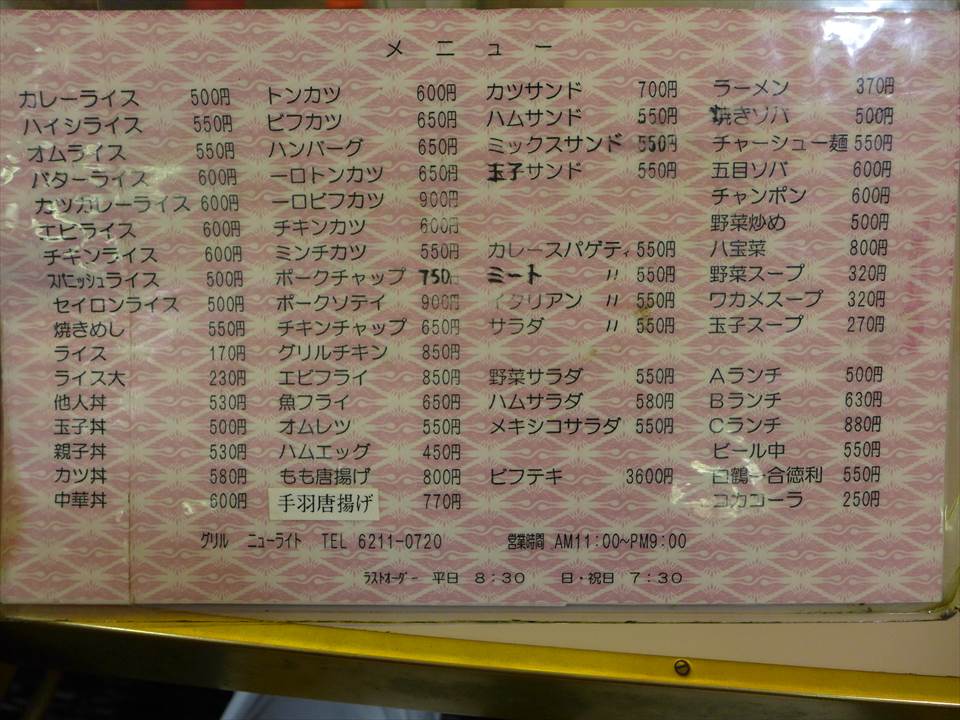 メニュー
カレーライス 500円
ハイシライス 550円
オムライス 550円
バターライス 600円
カツカレーライス 600円
エビライス 600円
チキンライス 600円
スパニッシュライス 500円
セイロンライス 500円
焼きめし 550円
ライス 170円
ライス大 230円
他人丼 530円
玉子丼 500円
親子丼 530円
カツ丼 580円
中華丼 600円
トンカツ 600円
ビフカツ 650円
ハンバーグ 650円
一口トンカツ 650円
一口ビフカツ 900円
チキンカツ 600円
ミンチカツ 550円
ポークチャップ 750円
ポークソテイ 900円
チキンチャップ 650円
グリルチキン 850円
エビフライ 850円
魚フライ 650円
オムレツ 550円
ハムエッグ 450円
もも唐揚げ 800円
手羽唐揚げ 770円
カツサンド 700円
ハムサンド 550円
ミックスサンド 550円
玉子サンド 550円
カレースパゲティ 550円
ミート 〃 550円
イタリアン 〃 550円
サラダ 〃 550円
野菜サラダ 550円
ハムサラダ 580円
メキシコサラダ 550円
ビフテキ 3600円
ラーメン 370円
焼きソバ 500円
チャーシュー麺 550円
五目ソバ 600円
チャンポン 600円
野菜炒め 500円
八宝菜 800円
野菜スープ 320円
ワカメスープ 320円
玉子スープ 270円
Aランチ 500円
Bランチ 630円
Cランチ 880円
ビール中 550円
白鶴一合徳利 550円
コカコーラ 250円
グリル ニューライト TEL 6211-0720 営業時間 AM11:00~PM9:00
ラストオーダー 平日 8:30 日・祝日 7:30